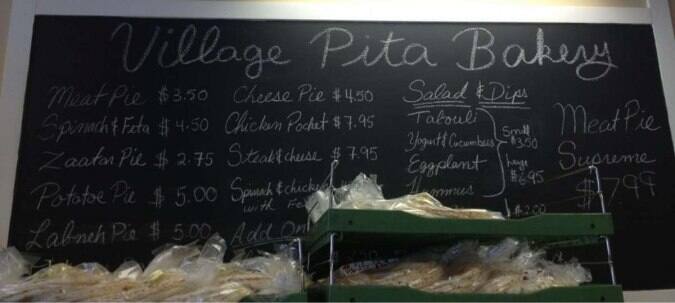 Village Pita Bakery
Meat Pie $3.50
Spinach & Feta $4.50
Zaatar Pie $2.75
Potatoe Pie $5.00
Labneh Pie $5.00
Cheese Pie $4.50
Chicken Pocket $7.95
Steak & cheese $7.95
Spinach & chicken
with
Add On
Salad & Dips
Tabouli
Yogurt & Cucumber
Eggplant
Hummus
Small
$3.50
large
$6.95
$2.00
Meat Pie
Supreme
$7.99